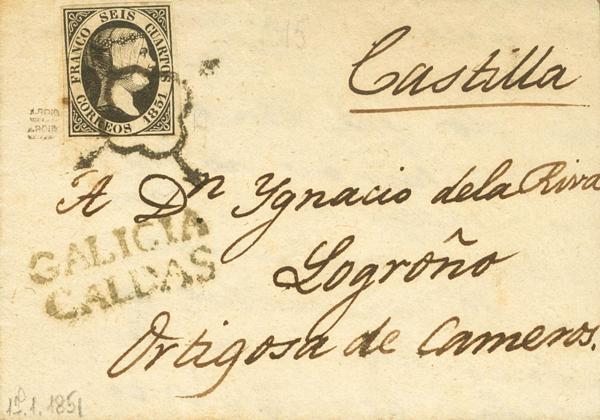 FRANCO SEIS CUARTOS
CORREOS 1851
Castilla
A Dn Ygnacio dela Riva
GALICIA
CALDAS
Logroño
Ortigosa de Cameros.